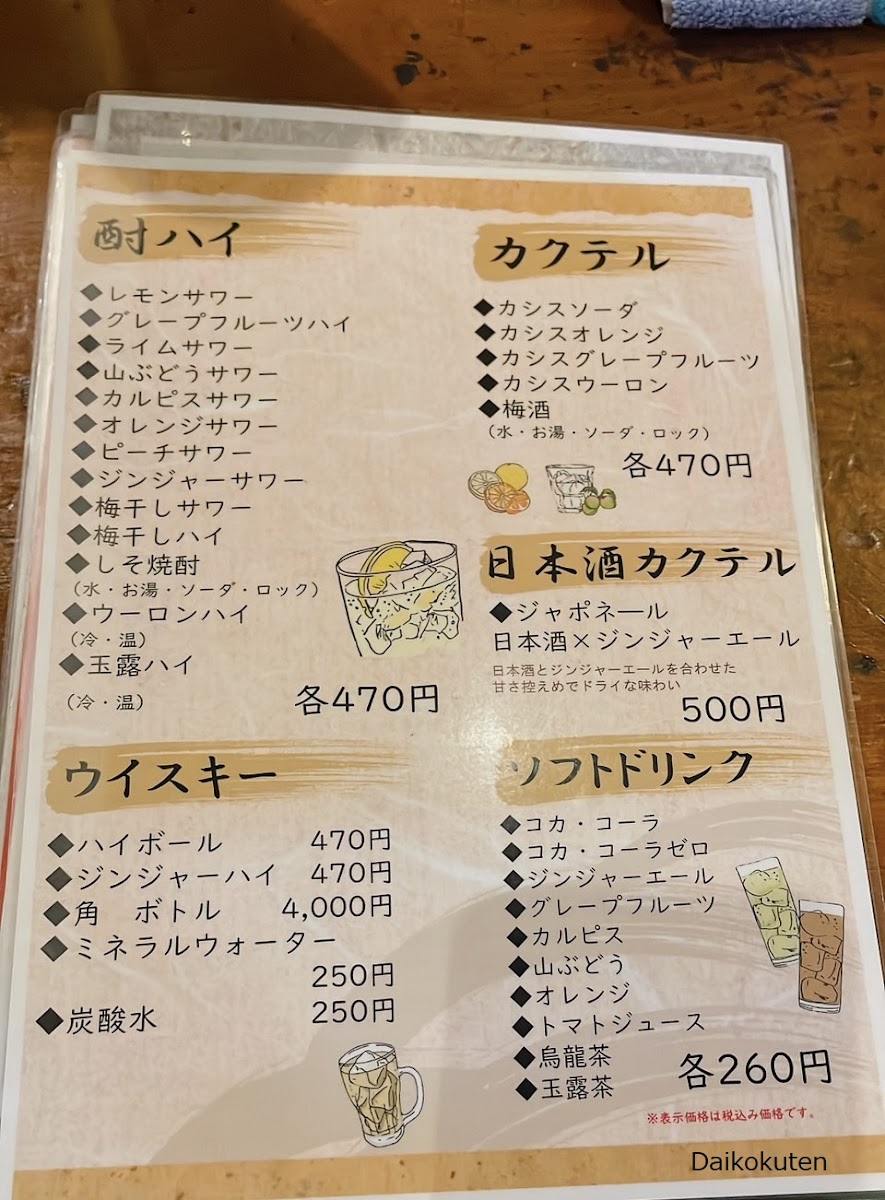 酎ハイ
◆レモンサワー
◆グレープフルーツハイ
◆ライムサワー
◆山ぶどうサワー
◆カルピスサワー
◆オレンジサワー
◆ピーチサワー
◆ジンジャーサワー
◆梅干しサワー
◆梅干しハイ
◆しそ焼酎
（水・お湯・ソーダ・ロック）
◆ウーロンハイ
（冷・温）
◆玉露ハイ
（冷・温）
各470円
ウイスキー
◆ハイボール 470円
◆ジンジャーハイ 470円
◆角 ボトル 4,000円
◆ミネラルウォーター
250円
◆炭酸水 250円
カクテル
◆カシスソーダ
◆カシスオレンジ
◆カシスグレープフルーツ
◆カシスウーロン
◆梅酒
（水・お湯・ソーダ・ロック）
各470円
日本酒カクテル
◆ジャポネ―ル
日本酒×ジンジャーエール
日本酒とジンジャーエールを合わせた
甘さ控えめでドライな味わい
500円
ソフトドリンク
◆コカ・コーラ
◆コカ・コーラゼロ
◆ジンジャーエール
◆グレープフルーツ
◆カルピス
◆山ぶどう
◆オレンジ
◆トマトジュース
◆烏龍茶
◆玉露茶
各260円
※表示価格は税込み価格です。
Daikokuten